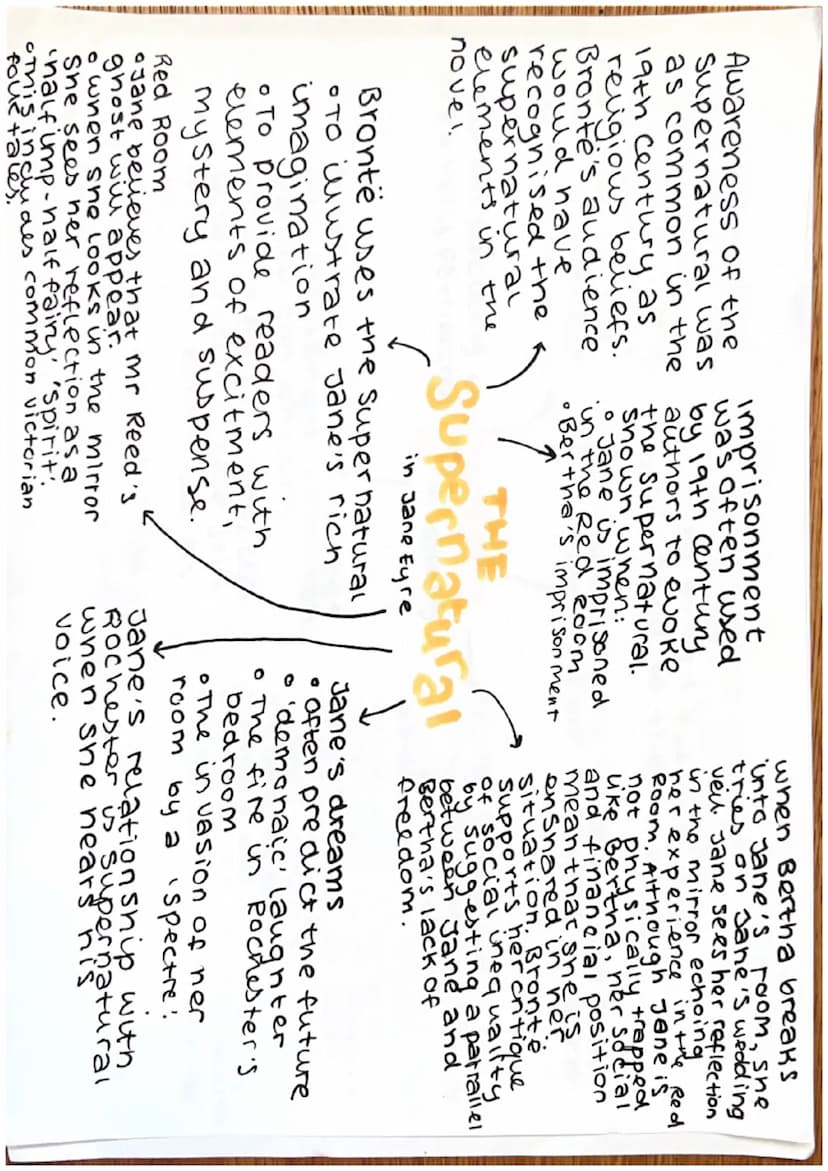 THE
Supernatural
in Jane Eyre
Awareness of the
supernatural was
as common in the
19th century as
religious beliefs.
Brontë's audience
would have
recognised the
supernatural
elements in the
novel.
imprisonment
was often used
by 19th century
authors to evoke
the supernatural.
shown when:
• Jane is imprisoned
in the Red Room
• Bertha's imprisonment
when Bertha breaks
into Jane's room, she
tries on Jane's wedding
veil. Jane sees her reflection
in the mirror echoing
her experience in the Red
Room. Although Jane is
not physically trapped
like Bertha, her social
and financial position
mean that she is
ensnared in her
situation. Brontë
supports her critique
of social inequality
by suggesting a parallel
between Jane and
Bertha's lack of
freedom.
Brontë uses the supernatural
• To illustrate Jane's rich
imagination
• To provide readers with
elements of excitment,
mystery and suspense.
Jane's dreams
• often predict the future
• 'demonaic' laughter
• The fire in Rochester's
bedroom
• The invasion of her
room by a 'spectre'.
Red Room
• Jane believes that Mr Reed's
ghost will appear.
• when she looks in the mirror
she sees her reflection as a
'half imp-half fairy' 'spirit'.
• this includes common victorian
folk tales.
Jane's relationship with
Rochester is supernatural
when she hears his
voice.